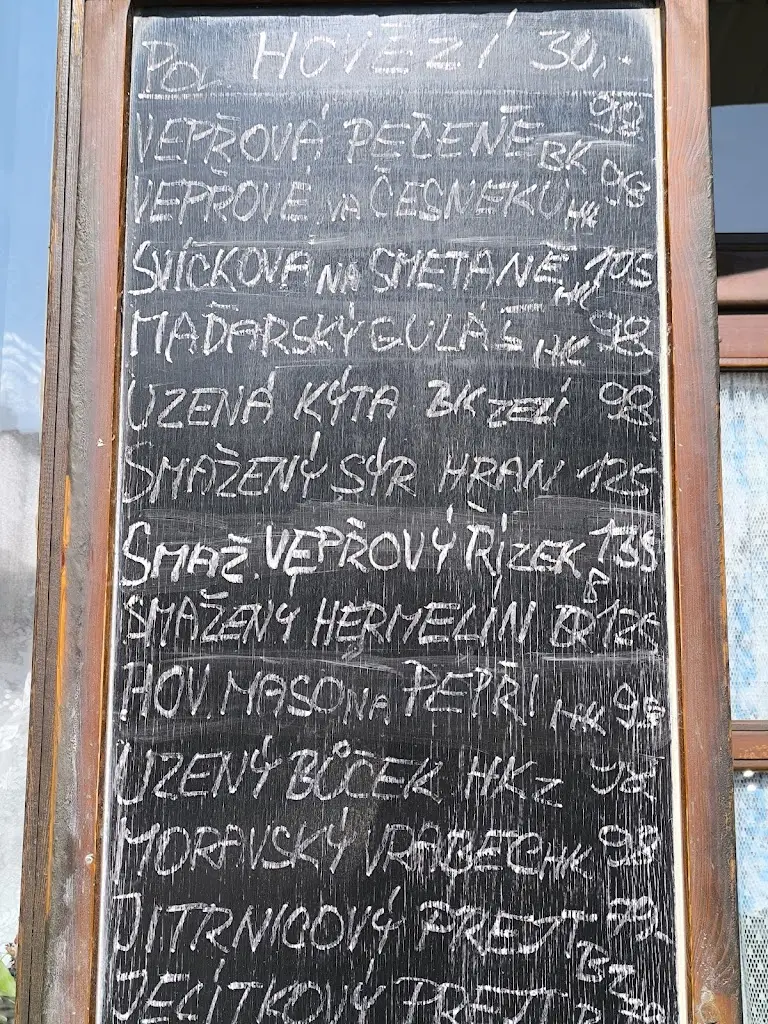 POL. HOVĚZÍ 30,-
VEPŘOVÁ PEČENĚ BK 98
VEPŘOVÉ NA ČESNEKU HK 98
SVÍČKOVÁ NA SMETANĚ HK 105
MAĎARSKÝ GULÁŠ HK 98
UZENÁ KÝTA BK ZELÍ 98
SMAŽENÝ SÝR HRAN 125
SMAŽ. VEPŘOVÝ ŘÍZEK B 135
SMAŽENÝ HERMELÍN BR 125
HOV. MASO NA PEPŘI HK 98
UZENÝ BŮČEK HK Z 98
MORAVSKÝ VRABEC HK 98
JITRNICOVÝ PREJT BZ 79,
JELÍTKOVÝ PREJT